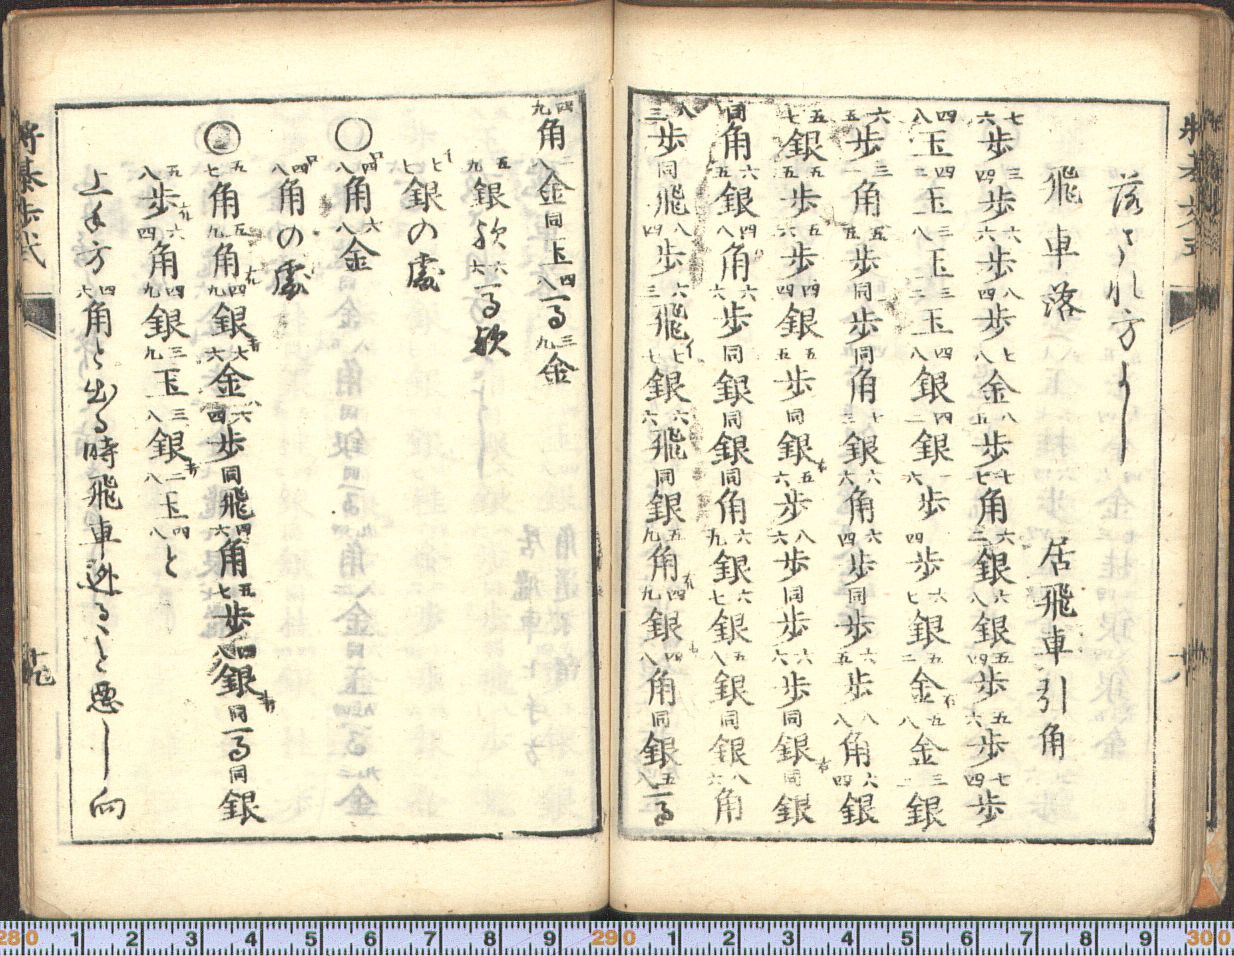 落され方よし
飛車落　居飛車引角
七六歩 三四歩 六六歩 八四歩 七八金 八五歩 七七角 六二銀 六八銀 五四歩 五六歩 七四歩
四八玉 四二玉 三八玉 三二玉 四八銀 四二銀 一六歩 一四歩 六七銀 五二金右 五八金 三二銀
六五歩 三一角 五五歩 同歩 同角 七三銀 六四角 六四歩 同歩 六五歩 八八角 六四銀
五七銀 五八歩 五六歩 四四銀 五五歩 同銀右 五六歩 八六歩 同歩 六六歩 同銀右 同銀
同角 六五銀 四八角 六六歩 同銀 同銀 同角 六九銀 六七銀 五八銀 同銀 八六角
八三歩 同飛 八四歩 六三飛 七七銀 六六飛 同銀 五九角打 四九銀打 四八角 同銀 五八る
四九角 一八金 同玉 四八る 三九金
五九銀歟 六六る歟
イ七七銀の處
○ロ四八角 六八金
ロ四四角の處
●五七角 五九角 四九銀打 六六金 六四歩 同飛 四六角 五七歩 銀打 同る 同銀
五八歩 六四角 四九銀 三九玉 三八銀打 二八玉 四八と
上手方四六角と出る時飛車逃るゝと悪し向